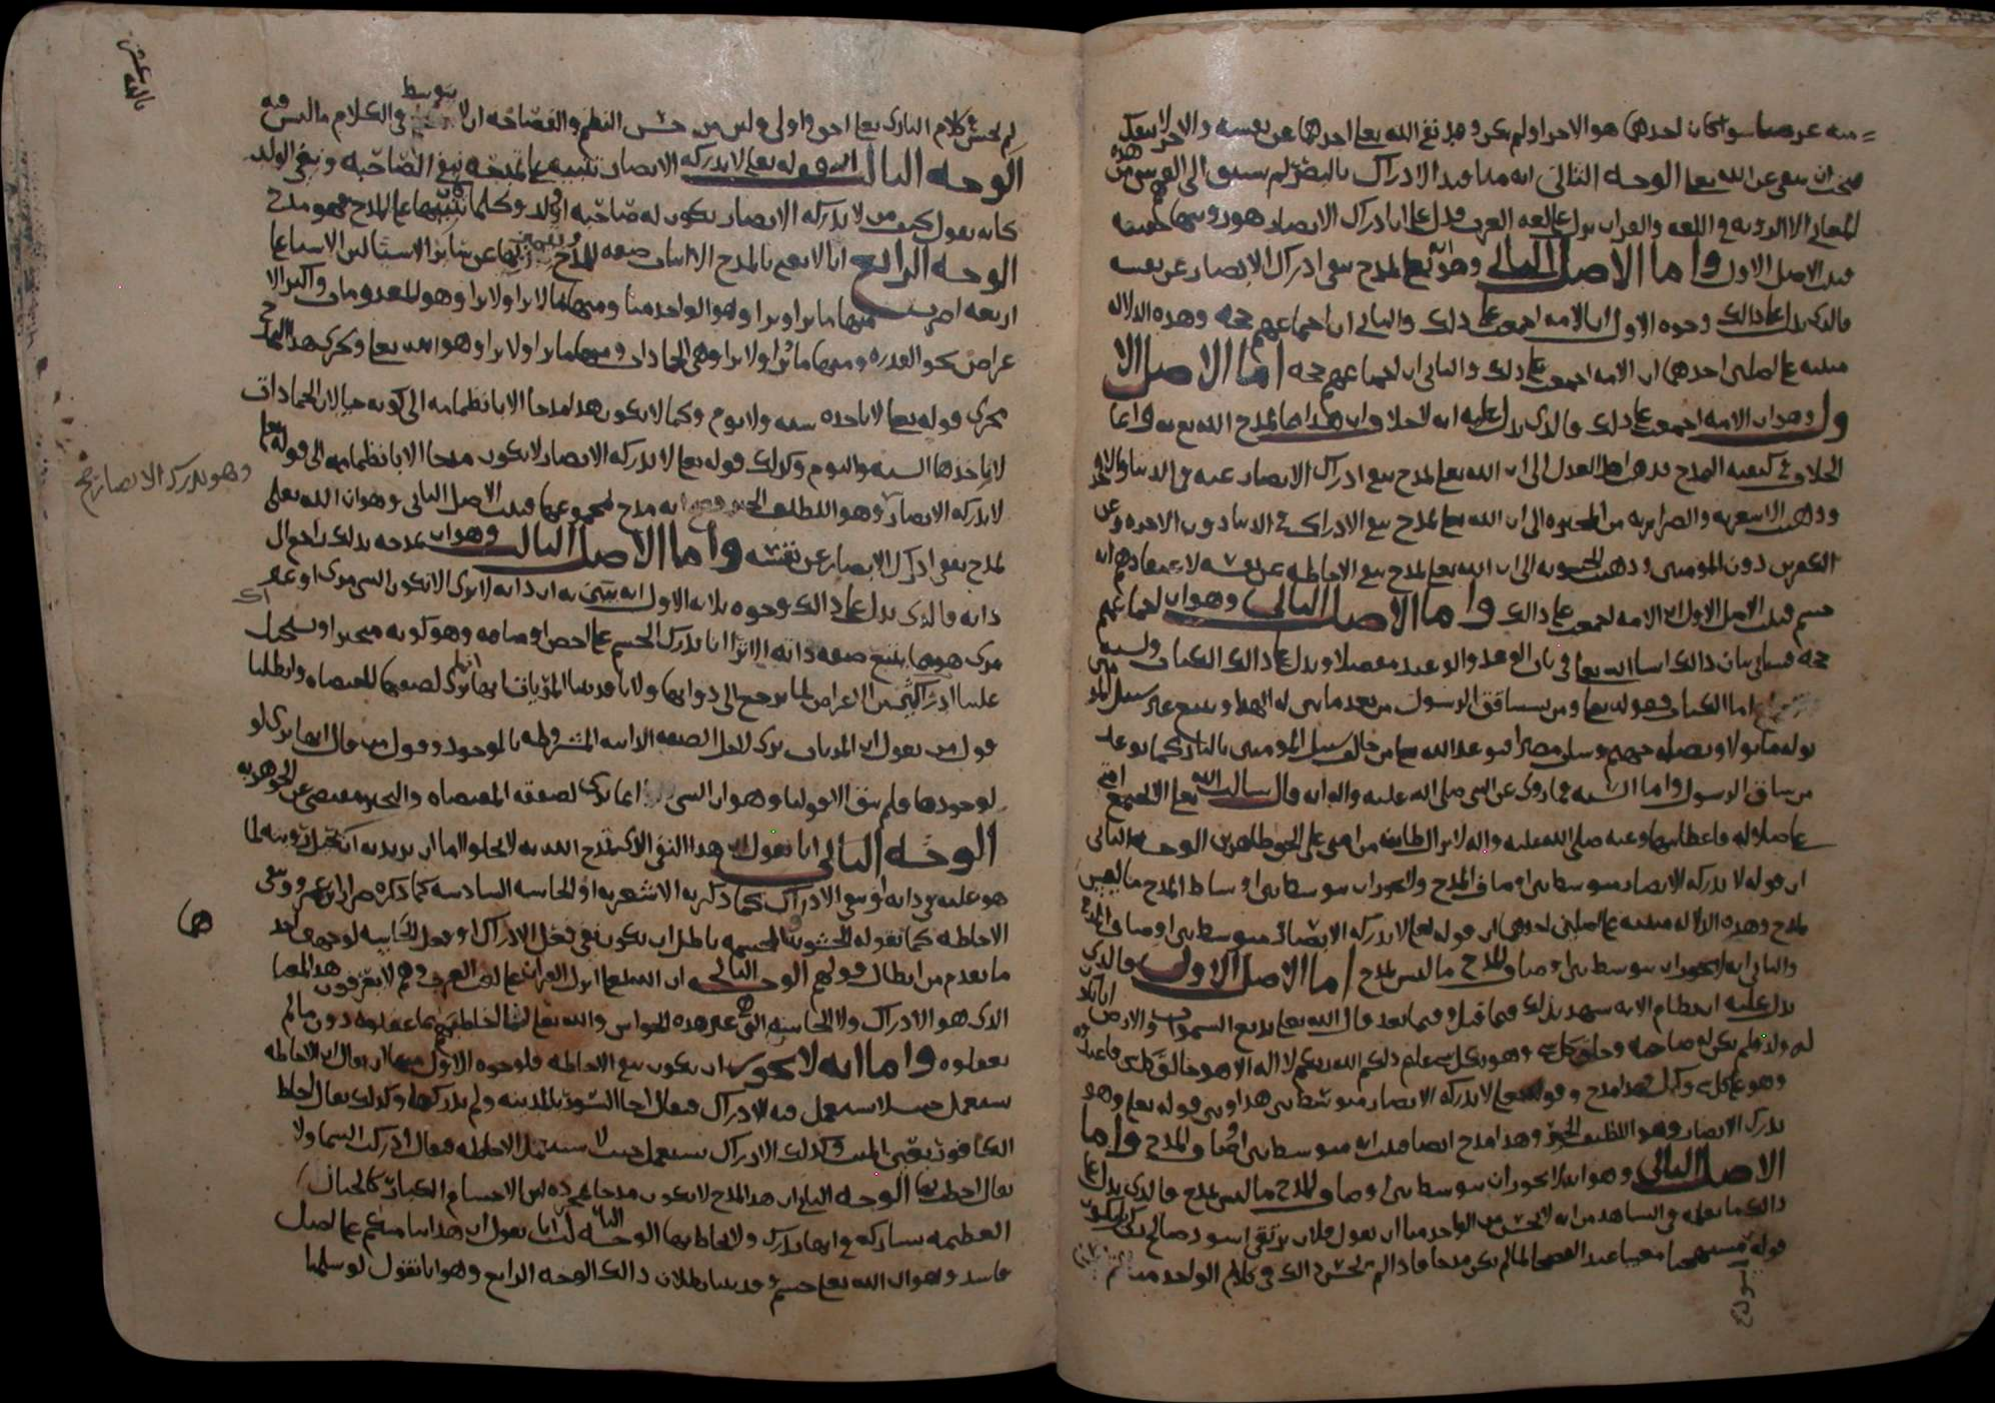 منه عرفنا سوا كان احدهما هو الاخر او لم يكن وقد نفى الله تعا احدهما عن نفسه والاخر لا ينفك
ان ينفى عن الله تعا الوجه الثاني انه متا قيد الادراك بالبصر لم يسبق الى الفهم من هذه
المعاني الا الرويه في اللغه والقران نزل على لغه العرب فدل على ان ادراك الابصار هو رويتها
فثبت الاصل الاول واما الاصل الثاني وهو انه تعا تمدح بنفي ادراك الابصار عن نفسه
فالذي يدل على ذالك وجوه الاول ان الامه اجمعت على ذلك والثاني ان اجماعهم حجه وهذه الدلاله
مبنيه على اصلين احدهما ان الامه اجمعت على ذلك والثاني ان اجماعهم حجه اما الاصل الا
ول وهو ان الامه اجمعت على ذلك فالذي يدل عليه انه لا خلاف ان هذا تمدح الله تع به وانما
الخلاف في كيفيه التمدح فذهب اهل العدل الى ان الله تعا تمدح بنفي ادراك الابصار عنه في الدنيا والاخره
وذهبت الاشعريه والضراريه من المجبره الى ان الله تعا تمدح بنفي الادراك في الدنيا دون الاخره وعن
الكفرين دون المومنين وذهبت الحشويه الى ان الله تعا تمدح بنفي الاحاطه عن نفسه لاعتقادهم انه
جسم فثبت الاصل الاول ان الامه اجمعت على ذالك واما الاصل الثاني وهو ان اجماعهم
حجه فسياتي بيان ذالك ان شا الله تعا في باب الوعد والوعيد مفصلا ويدل على ذالك الكتاب والسنه
اما الكتاب فقوله تعا ومن يشاقق الرسول من بعد ما تبين له الهدا ويتبع غير سبيل المومنين
نوله ما تولا ونصله جهنم وسات مصيرا فتوعد الله تعا من خالف سبيل المومنين بالنار كما توعد
من شاق الرسول واما السنه فما روي عن النبي صلى الله عليه واله انه قال سالت الله تعا الا تجتمع امتي
على ضلاله فاعطانيها وعنه صلى الله عليه واله لا تزال طايفه من امتي على الحق ظاهرين الوجه الثاني
ان قوله لا تدركه الابصار متوسط بين اوصاف المدح ولا يجوز ان يتوسط بين اوساط المدح ما ليس
بمدح وهذه الدلاله مبنيه على اصلين احدهما ان قوله تعا لا تدركه الابصار متوسط بين اوصاف المدح
والثاني انه لا يجوز ان يتوسط بين اوصاف المدح ما ليس بمدح اما الاصل الاول فالذي
يدل عليه ان نظام الايه يشهد بذلك فيما قبل وفيما بعد قال الله تعا بديع السموات والارض انا يكون
له ولد ولم تكن له صاحبه وخلق كل شي وهو بكل شي عليم ذلكم الله ربكم لا اله الا هو خالق كل شي فاعبدوه
وهو على كل شي وكيل فهذا مدح وقوله تعا لا تدركه الابصار متوسط بين هذا وبين قوله تعا وهو
يدرك الابصار وهو اللطيف الخبير وهذا مدح ايضا فثبت انه متوسط بين اوصاف المدح واما
الاصل الثاني وهو انه لا يجوز ان يتوسط بين اوصاف المدح ما ليس بمدح فالذي يدل على
ذالك ما نعلمه في الشاهد من انه لا يحسن من الواحد منا ان يقول فلان تقي اسود صالح
قوله مستهجنا معيبا عند الفصحا لما لم يكن مدحا فاذا لم يحسن ذالك في كلام الواحد منا
لم يحسن في كلام الباري تعا احرى واولى وليس من حسن النظم والفصاحه ان لا يتوسط في الكلام ما ليس فيه
الوجه الثالث ان قوله تعا لا تدركه الابصار تنبيه على تمدحه بنفي الصاحبه ونفي الولد
كانه يقول كيف من لا تدركه الابصار تكون له صاحبه او ولد وكلما تنبيها على المدح فهو مدح
الوجه الرابع انا لا نعني بالمدح الا اثبات صفه للمدوح يتميز بها عن ساير الاشيا لان الاشيا على
اربعه اضرب منها ما يرا ويرا وهو الواحد منا ومنها ما لا يرا ولا يرا وهو المعدومات واكثر الا
عراض نحو القدره ومنها ما يرا ولا يرا وهي الجمادات ومنها ما يرا ولا يرا وهو الله تعا ويجري هذا التمدح
مجرى قوله تعا لا تاخذه سنه ولا نوم وكما لا يكون هذا مدحا الا بانظمامه الى كونه حيا لان الجمادات
لا ياخذها السنه والنوم وكذلك قوله تعا لا تدركه الابصار لا يكون مدحا الا بانظمامه الى قوله تعا
وهو يدرك الابصار صح
لا تدركه الابصار وهو اللطيف الخبير انه مدح بمجموعها فثبت الاصل الثاني وهو ان الله تعلى
تمدح بنفي ادراك الابصار عن نفسه واما الاصل الثالث وهو ان تمدحه بذلك راجع الى
ذاته فالذي يدل على ذالك وجوه ثلاثه الاول انه بين به ان ذاته لا ترى لان كون الشي مريا او غير
مري يتبع صفه ذاته الا ترا انا ندرك الجسم على اخص اوصافه وهو كونه متحيزا ويستحيل
علينا ادراك كثير من الاعراض لما يرجع الى ذواتها ولانا قد بينا المريات انها انما ترى لصفتها المقتضاه وابطلنا
قول من يقول ان المريات ترى لاجل الصفه الذاتيه المشروطه بالوجود وقول من قال انها ترى لو
لوجودها فلم يبق الا قولنا وهو ان الشي انما يرى لصفته المقتضاه والتحيز مقتضى عن الجوهريه
الوجه الثاني انا نقول ان هذا النفي الذي تمدح الله به لا يخلوا اما ان يريد به
هو عليه في ذاته او نفي الادراك كما ذكرته الاشعريه او الحاسه السادسه كما ذكره ضرار بن عمرو ونفي
الاحاطه كما تقوله الحشويه المجسمه باطل ان يكون نفي فعل الادراك او فعل الحاسه لوجهين احد
ما تقدم من ابطال قولهم الوجه الثاني ان الله تعا انزل القران على لغه العرب وهم لا يعرفون هذا المعنا
الذي هو الادراك ولا الحاسه التي غير هذه الحواس والله تعا انما خاطبهم بما عقلوه دون مالم
يعقلوه واما انه لا يجوز ان يكون نفي الاحاطه فلوجوه الاول منها ان يقال ان الاحاطه
تستعمل حيث لا يستعمل فيه الادراك فيقال احاط السور بالمدينه ولم يدركها وكذلك يقال احاط
الكافور بعيني الميت وكذلك الادراك يستعمل حيث لا تستعمل الاحاطه فيقال ادركت السما ولا
يقال احطت بها الوجه الثاني ان هذا المدح لا يكون مدحا لان الاجسام الكبار كالجبال
العظيمه تشاركه في انها تدرك ولا يحاط بها الوجه الثالث انا نقول ان هذا بنا منكم على اصل
فاسد وهو ان الله تعا جسم وقد بينا بطلان ذالك الوجه الرابع وهو انا نقول لو سلمنا